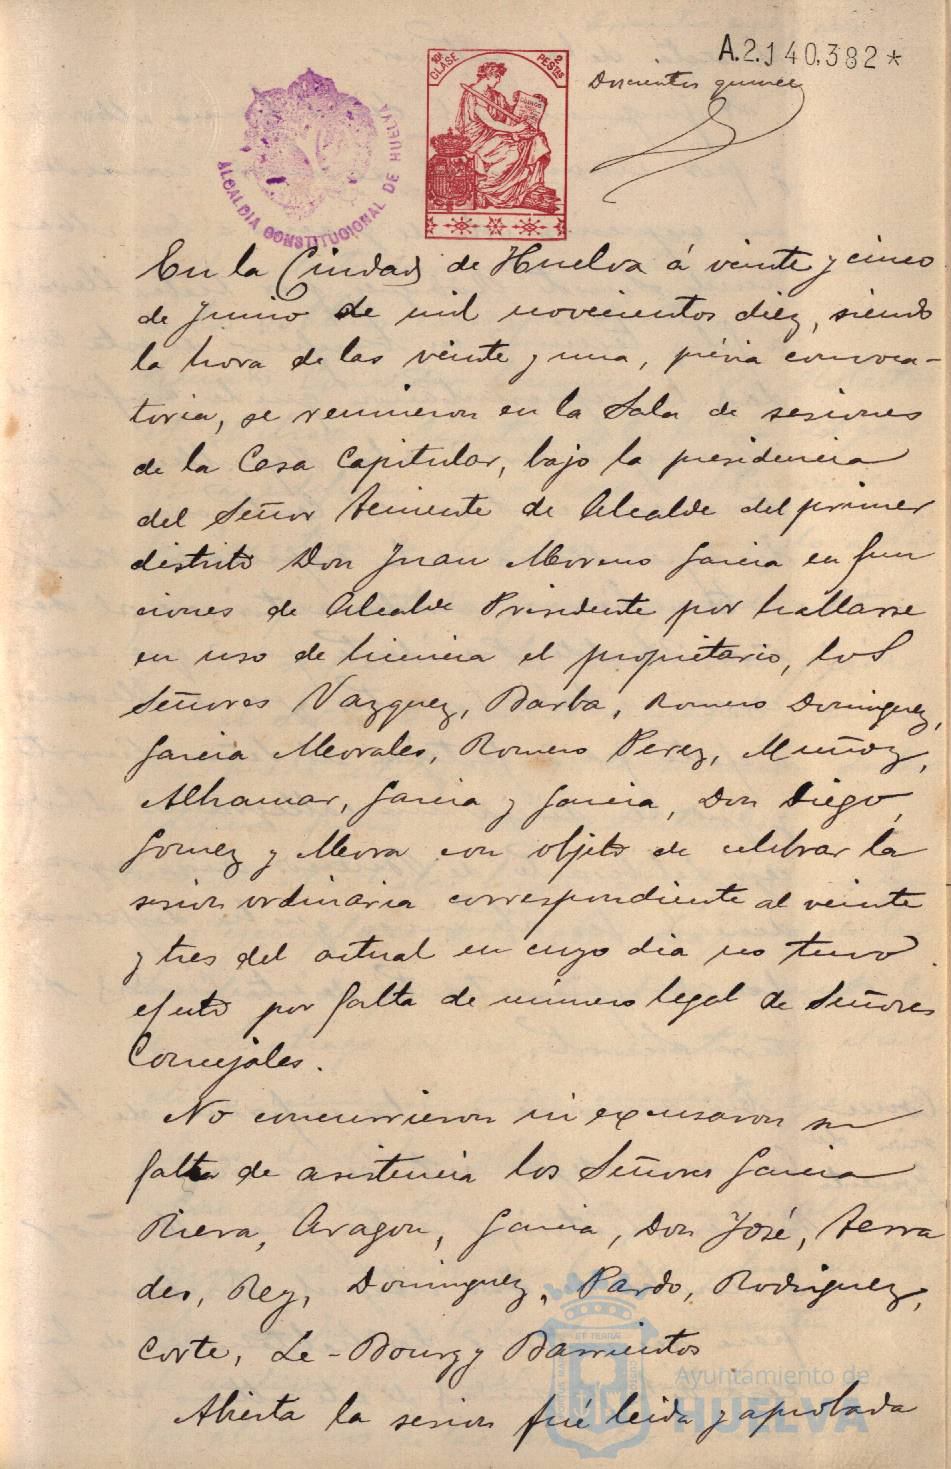 A.2.140,382*
Doscientos quince
10ª CLASE
2 PESTAS
ALCALDIA CONSTITUCIONAL DE HUELVA
En la Ciudad de Huelva á veinte y cinco
de Junio de mil novecientos diez, siendo
la hora de las veinte y una, prévia convoca-
toria, se reunieron en la Sala de sesiones
de la Casa Capitular, bajo la presidencia
del Señor Teniente de Alcalde del primer
distrito Don Juan Moreno Garcia en fun
ciones de Alcalde Presidente por hallarse
en uso de licencia el propietario, los
Señores Vazquez, Barba, Romero Dominguez,
Garcia Morales, Romero Perez, Muñoz,
Alhamar, Garcia y Garcia, Don Diego,
Gomez y Mora con objeto de celebrar la
sesion ordinaria correspondiente al veinte
y tres del actual en cuyo dia no tuvo
efecto por falta de número legal de Señores
Concejales.
No concurrieron ni excusaron su
falta de asistencia los Señores Garcia
Riera, Aragon, Garcia, Don José, Terra
des, Rey, Dominguez, Pardo, Rodriguez,
Corte, Le-Bourg y Barrientos
Abierta la sesion fué leida y aprobada
Ayuntamiento de
HUELVA